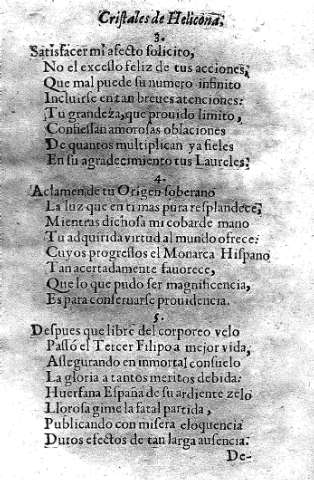 Cristales de Helicona.
3.
Satisfacer mi afecto solicito,
No el excesso feliz de tus acciones;
Que mal puede su numero infinito
Incluirse en tan breues atenciones:
Tu grandeza, que prouido limito,
Confiessan amorosas oblaciones
De quantos multiplican ya fieles
En su agradecimiento tus Laureles;
4.
Aclamen de tu Origen soberano
La luz que en ti mas pura resplandece,
Mientras dichosa mi cobarde mano
Tu adquirida virtud al mundo ofrece:
Cuyos progressos el Monarca Hispano
Tan acertadamente fauorece,
Que lo que pudo ser magnificencia,
Es para conseruarse prouidencia.
5.
Despues que libre del corporeo velo
Passò el Tercer Filipo a mejor vida,
Assegurando en inmortal consuelo
La gloria a tantos meritos debida:
Huerfana España de su ardiente zelo
Llorosa gime la fatal partida,
Publicando con misera eloquencia
Duros efectos de tan larga ausencia.
De-